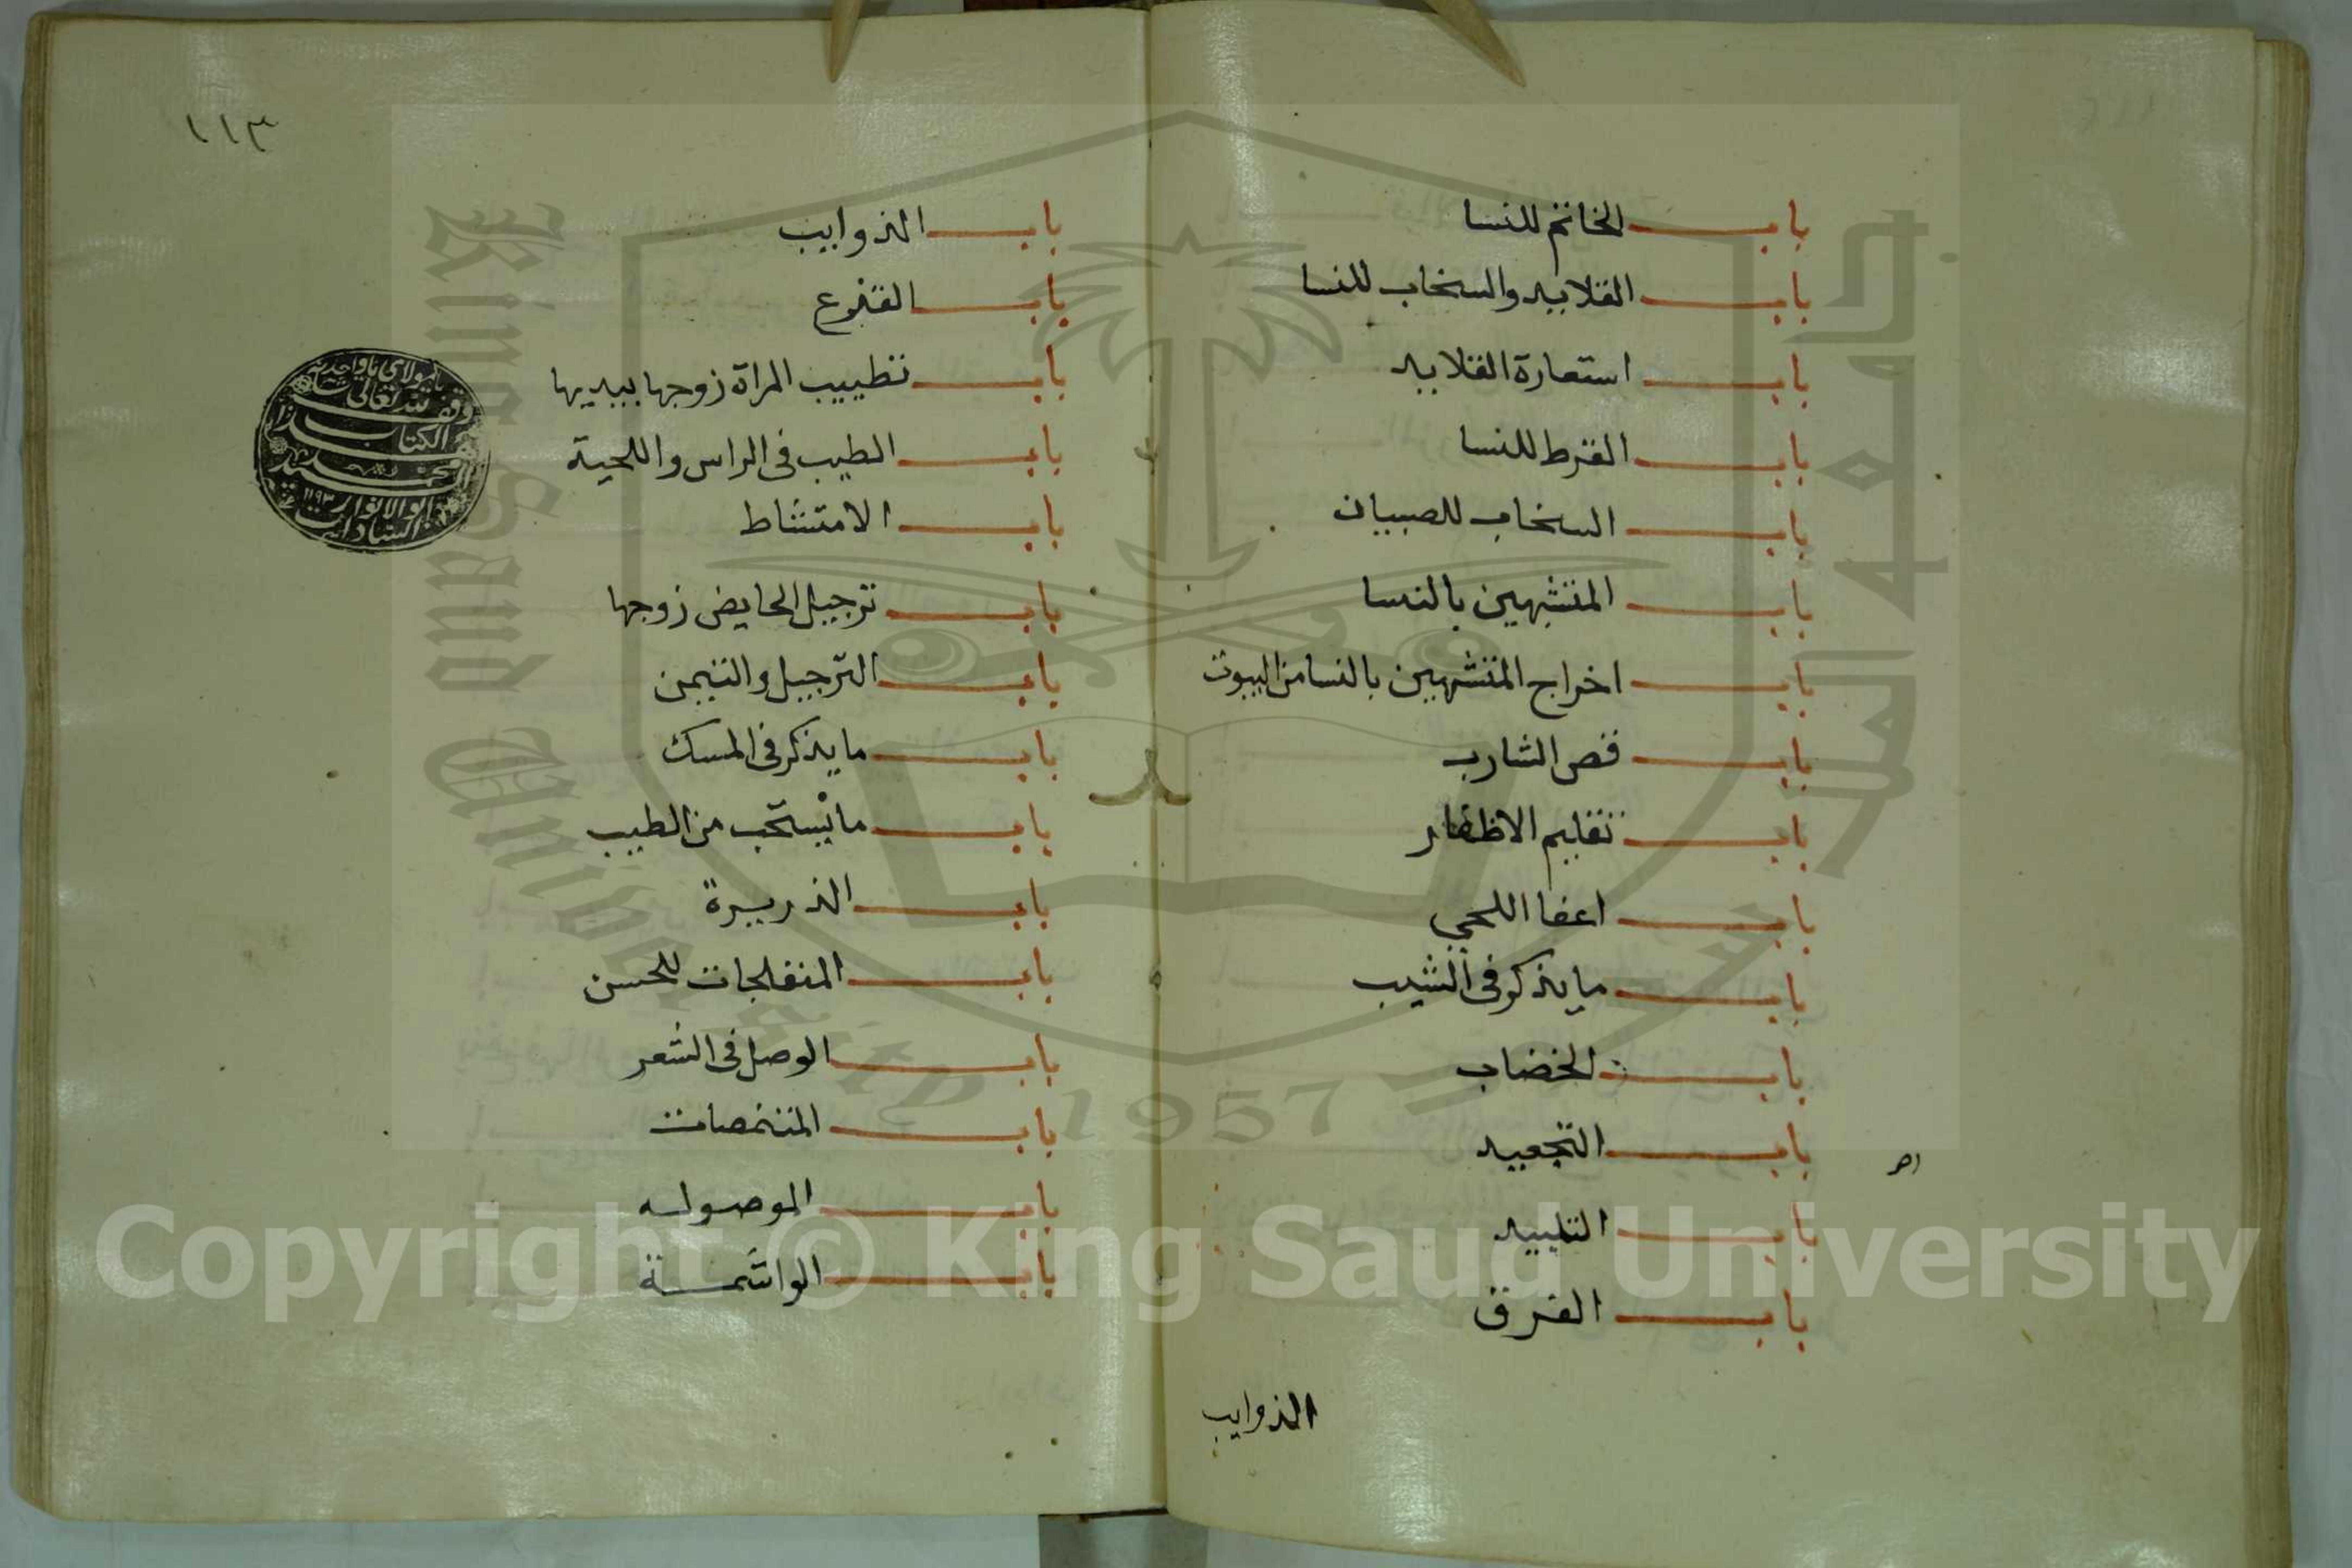 باب الخاتم للنسا
باب القلايد والسخاب للنسا
باب استعارة القلايد
باب القرط للنسا
باب السخاب للصبيان
باب المتشبهين بالنسا
باب اخراج المتشبهين بالنسا من البيوت
باب قص الشارب
باب تقليم الاظفار
باب اعفا اللحي
باب ما يذكر في الشيب
باب الخضاب
باب التجعيد
باب التلبيد
باب الفرق
الذوايب
١١٣
باب الذوايب
باب القزع
باب تطييب المراة زوجها بيديها
باب الطيب في الراس واللحية
باب الامتشاط
باب ترجيل الحايض زوجها
باب الترجيل والتيمن
باب ما يذكر في المسك
باب ما يستحب من الطيب
باب الذريرة
باب المتفلجات للحسن
باب الوصل في الشعر
باب المتنمصات
باب الموصوله
باب الواشمة
وقف لله تعالى
الكتاب
محمد
ابو الانوار
السادات
١١٩٣
King Saud University
1957
جامعة الملك سعود
Copyright © King Saud University